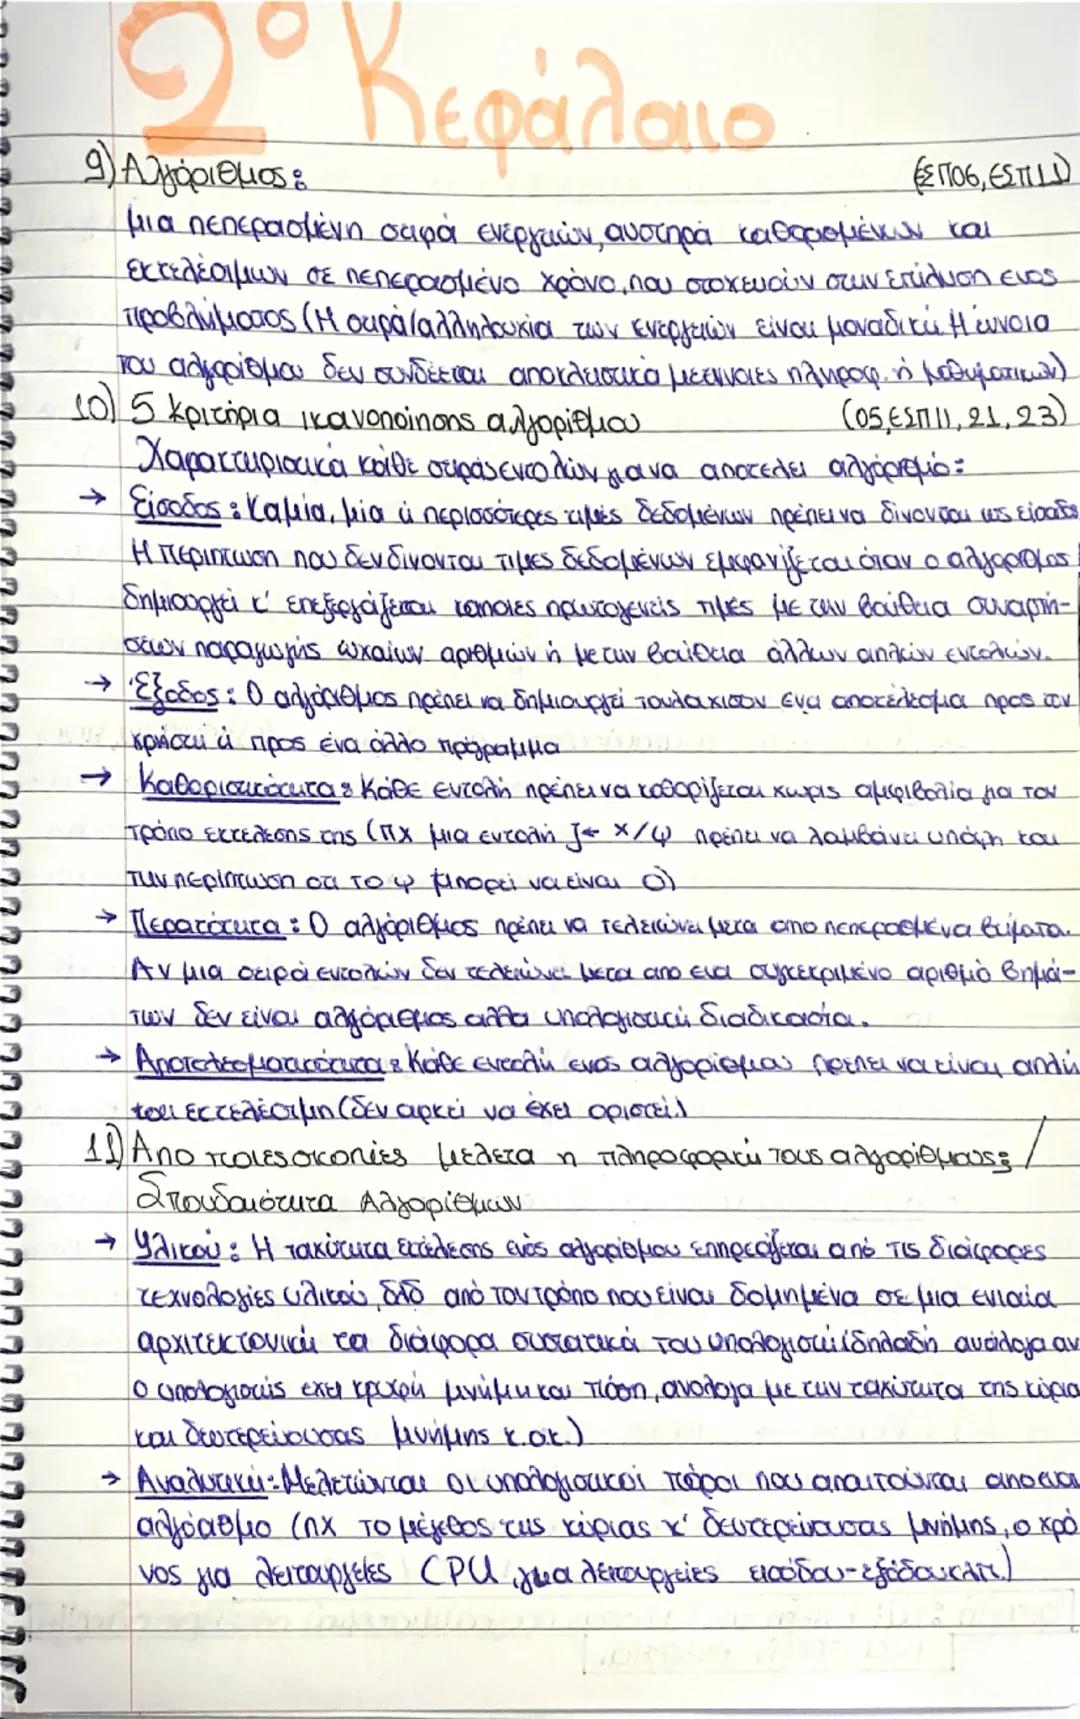 2º Κεφάλαιο
9) Αλγόριθμος: (ΕΣΠ06, ΕΣΠ11)
μια πεπερασμένη σειρά ενεργειών, αυστηρά καθορισμένων και
εκτελέσιμων σε πεπερασμένο χρόνο, που στοχεύουν στην επίλυση ενος
προβλήματος (Η σειρά/αλληλουχία των ενεργειών είναι μοναδική. Η έννοια
του αλγορίθμου δεν συνδέεται αποκλειστικά με έννοιες πληροφ. ή μαθηματικών)
10) 5 κριτήρια ικανοποίησης αλγορίθμου (05, ΕΣΠ11, 21, 23)
Χαρακτηριστικά κάθε σειράς εντολών για να αποτελεί αλγόριθμό:
→ Είσοδος: Καμία, μία ή περισσότερες τιμές δεδομένων πρέπει να δίνονται ως είσοδο
Η περίπτωση που δεν δίνονται τιμές δεδομένων εμφανίζεται όταν ο αλγόριθμος
δημιουργεί κ' επεξεργάζεται κάποιες πρωτογενείς τιμές με την βοήθεια συναρτή-
σεων παραγωγής τυχαίων αριθμών ή με την βοήθεια άλλων απλών εντολών.
→ Έξοδος: Ο αλγόριθμος πρέπει να δημιουργεί τουλάχιστον ένα αποτέλεσμα προς τον
χρήστη ή προς ένα άλλο πρόγραμμα
→ Καθοριστικότητα: Κάθε εντολή πρέπει να καθορίζεται χωρίς αμφιβολία για τον
τρόπο εκτέλεσης της (πχ μια εντολή J← x/ψ πρέπει να λαμβάνει υπόψη και
την περίπτωση οτι το ψ μπορεί να είναι 0)
→ Περατότητα: Ο αλγόριθμος πρέπει να τελειώνει μετα απο πεπερασμένα βήματα.
Αν μια σειρά εντολών δεν τελειώνει μετα απο ένα συγκεκριμένο αριθμό βημά-
των δεν είναι αλγόριθμος αλλα υπολογιστική διαδικασία.
→ Αποτελεσματικότητα: Κάθε εντολή ενός αλγορίθμου πρέπει να είναι απλή
και εκτελέσιμη (δεν αρκεί να έχει οριστεί.)
11) Απο ποιες σκοπιές μελετα η πληροφορική τους αλγορίθμους; /
Σπουδαιότητα Αλγορίθμων
→ Υλικού: Η ταχύτητα εκτέλεσης ενός αλγορίθμου επηρεάζεται από τις διάφορες
τεχνολογίες υλικού, δλδ από τον τρόπο που είναι δομημένα σε μια ενιαία
αρχιτεκτονική τα διάφορα συστατικά του υπολογιστή (δηλαδή ανάλογα αν
ο υπολογιστής έχει κρυφή μνήμη και πόση, ανάλογα με την ταχύτητα της κύρια
και δευτερεύουσας μνήμης κ.οκ.)
→ Αναλυτική: Μελετώνται οι υπολογιστικοί πόροι που απαιτούνται απο ένα
αλγόριθμο (πχ το μέγεθος της κύριας κ' δευτερεύουσας μνήμης, ο χρό
νος για λειτουργίες CPU, για λειτουργείες εισόδου-εξόδου κλπ.)